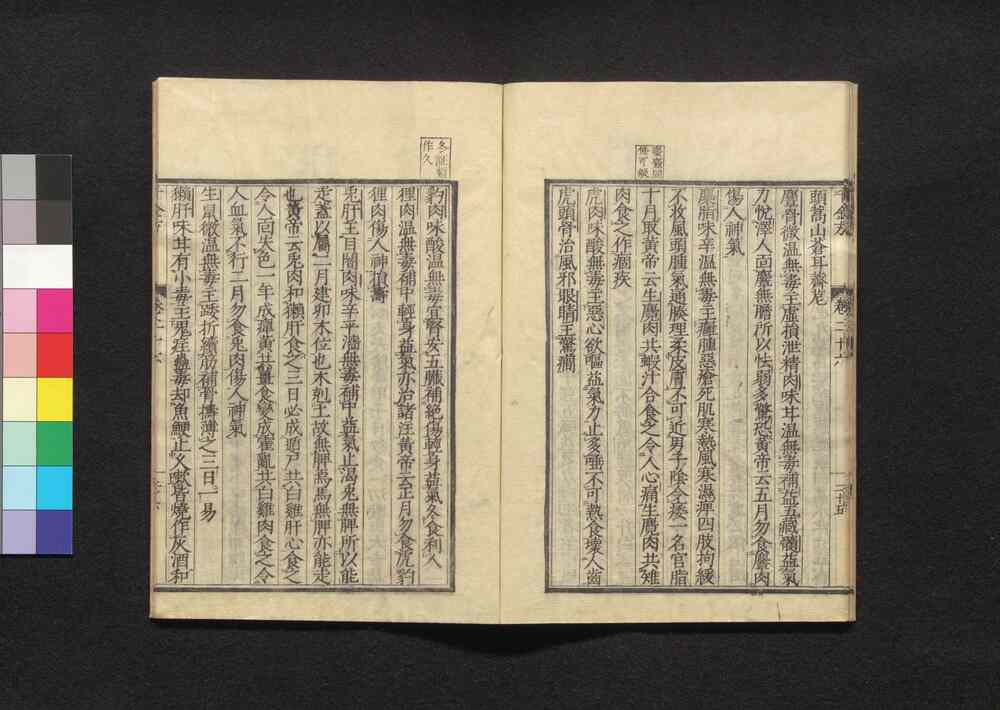 頭嵩山蒼耳薺苨
麞骨微温無毒主虚損泄精肉味甘温無毒補益五藏髓益氣
力悦澤人面麞無膽所以怯弱多驚恐黃帝云五月勿食麞肉
傷人神氣
麋脂味辛温無毒主癰腫惡瘡死肌寒熱風寒濕痺四肢拘緩
不收風頭腫氣通腠理柔皮膚不可近男子陰令痿一名官脂
十月取黃帝云生麋肉共蝦汁合食之令人心痛生麋肉共雉
肉食之作痼疾
虎肉味酸無毒主惡心欲嘔益氣力止多唾不可熱食壞人齒
虎頭骨治風邪虎眼睛主驚癇
豹肉味酸温無毒宜腎安五臟補絶傷輕身益氣久食利人
狸肉温無毒補中輕身益氣亦治諸注黃帝云正月勿食虎豹
狸肉傷人神損壽
兎肝主目暗肉味辛平濇無毒補中益氣止渴兎無脾所以能
走蓋以屬二月建卯木位也木剋土故無脾焉馬無脾亦能走
也黃帝云兎肉和獺肝食之三日必成遁尸共白雞肝心食之
令人面失色一年成癉黃共薑食變成霍亂共白雞肉食之令
人血氣不行二月勿食兎肉傷人神氣
生鼠微温無毒主踒折續筋補骨擣薄之三日一易
獺肝味甘有小毒主鬼疰蠱毒却魚鯁止久嗽皆燒作灰酒和
冬証類
作久
卷二十六